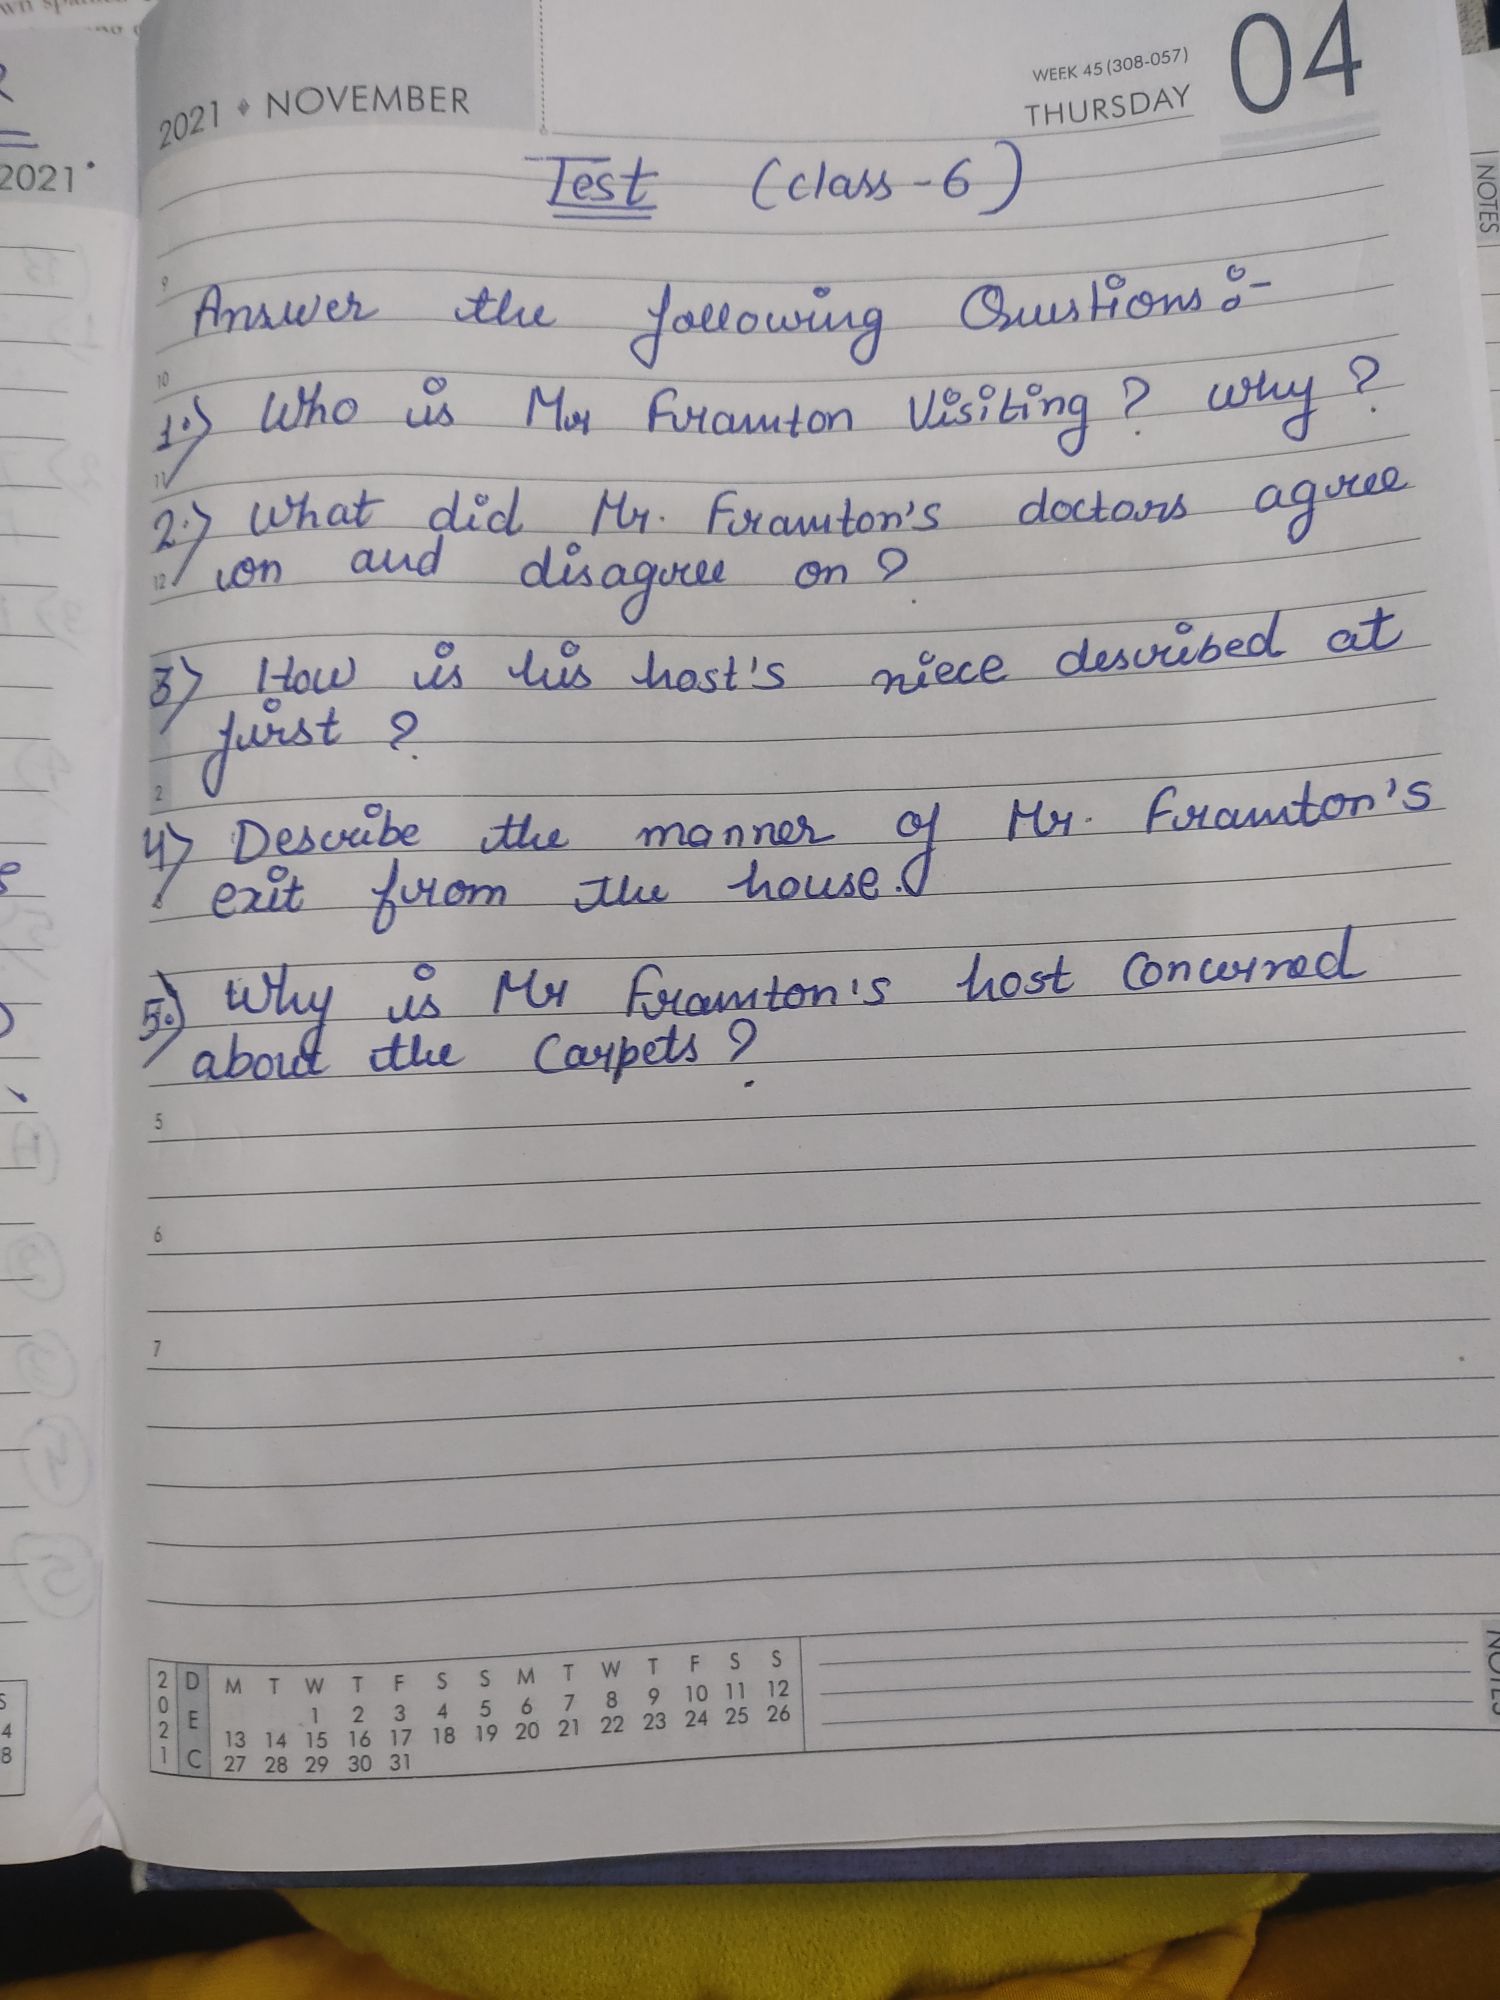 2021 ♦ NOVEMBER
WEEK 45 (308-057)
THURSDAY
04
Test (class - 6)
Answer the following Questions :-
1.) Who is Mr Framton Visiting ? Why ?
2.) What did Mr. Framton's doctors agree
on and disagree on ?
3) How is his host's niece described at
first ?
4) Describe the manner of Mr. Framton's
exit from the house.
5.) Why is Mr Framton's host Concerned
about the Carpets ?
9
10
11
12
2
5
6
7
2021 DEC
M T W T F S S M T W T F S S
1 2 3 4 5 6 7 8 9 10 11 12
13 14 15 16 17 18 19 20 21 22 23 24 25 26
27 28 29 30 31
2021
NOTES
NOTES